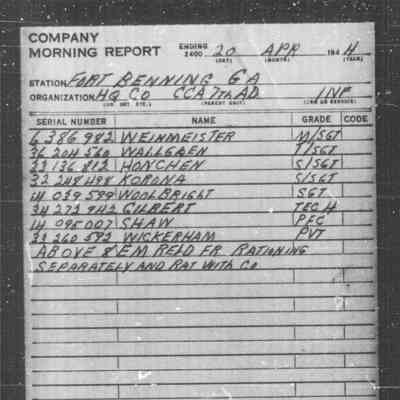 COMPANY
MORNING REPORT ENDING 2400 20 APR 1944
(DAY) (MONTH) (YEAR)
STATION FORT BENNING GA
ORGANIZATION HQ CO CCA 7TH AD INF
(CO. DET. ETC.) (PARENT UNIT) (ARM OR SERVICE)
SERIAL NUMBER NAME GRADE CODE
6 386 982 WEINMEISTER M/SGT
36 204 560 WALLGREN T/SGT
33 136 812 HONCHEN S/SGT
32 248 498 KORONA S/SGT
14 039 599 WOOLBRIGHT SGT
34 272 942 GILBERT TEC 4
14 095 007 SHAW PFC
33 260 592 WICKERHAM PVT
ABOVE 8 EM RELD FR RATIONING
SEPARATELY AND RAT WITH CO